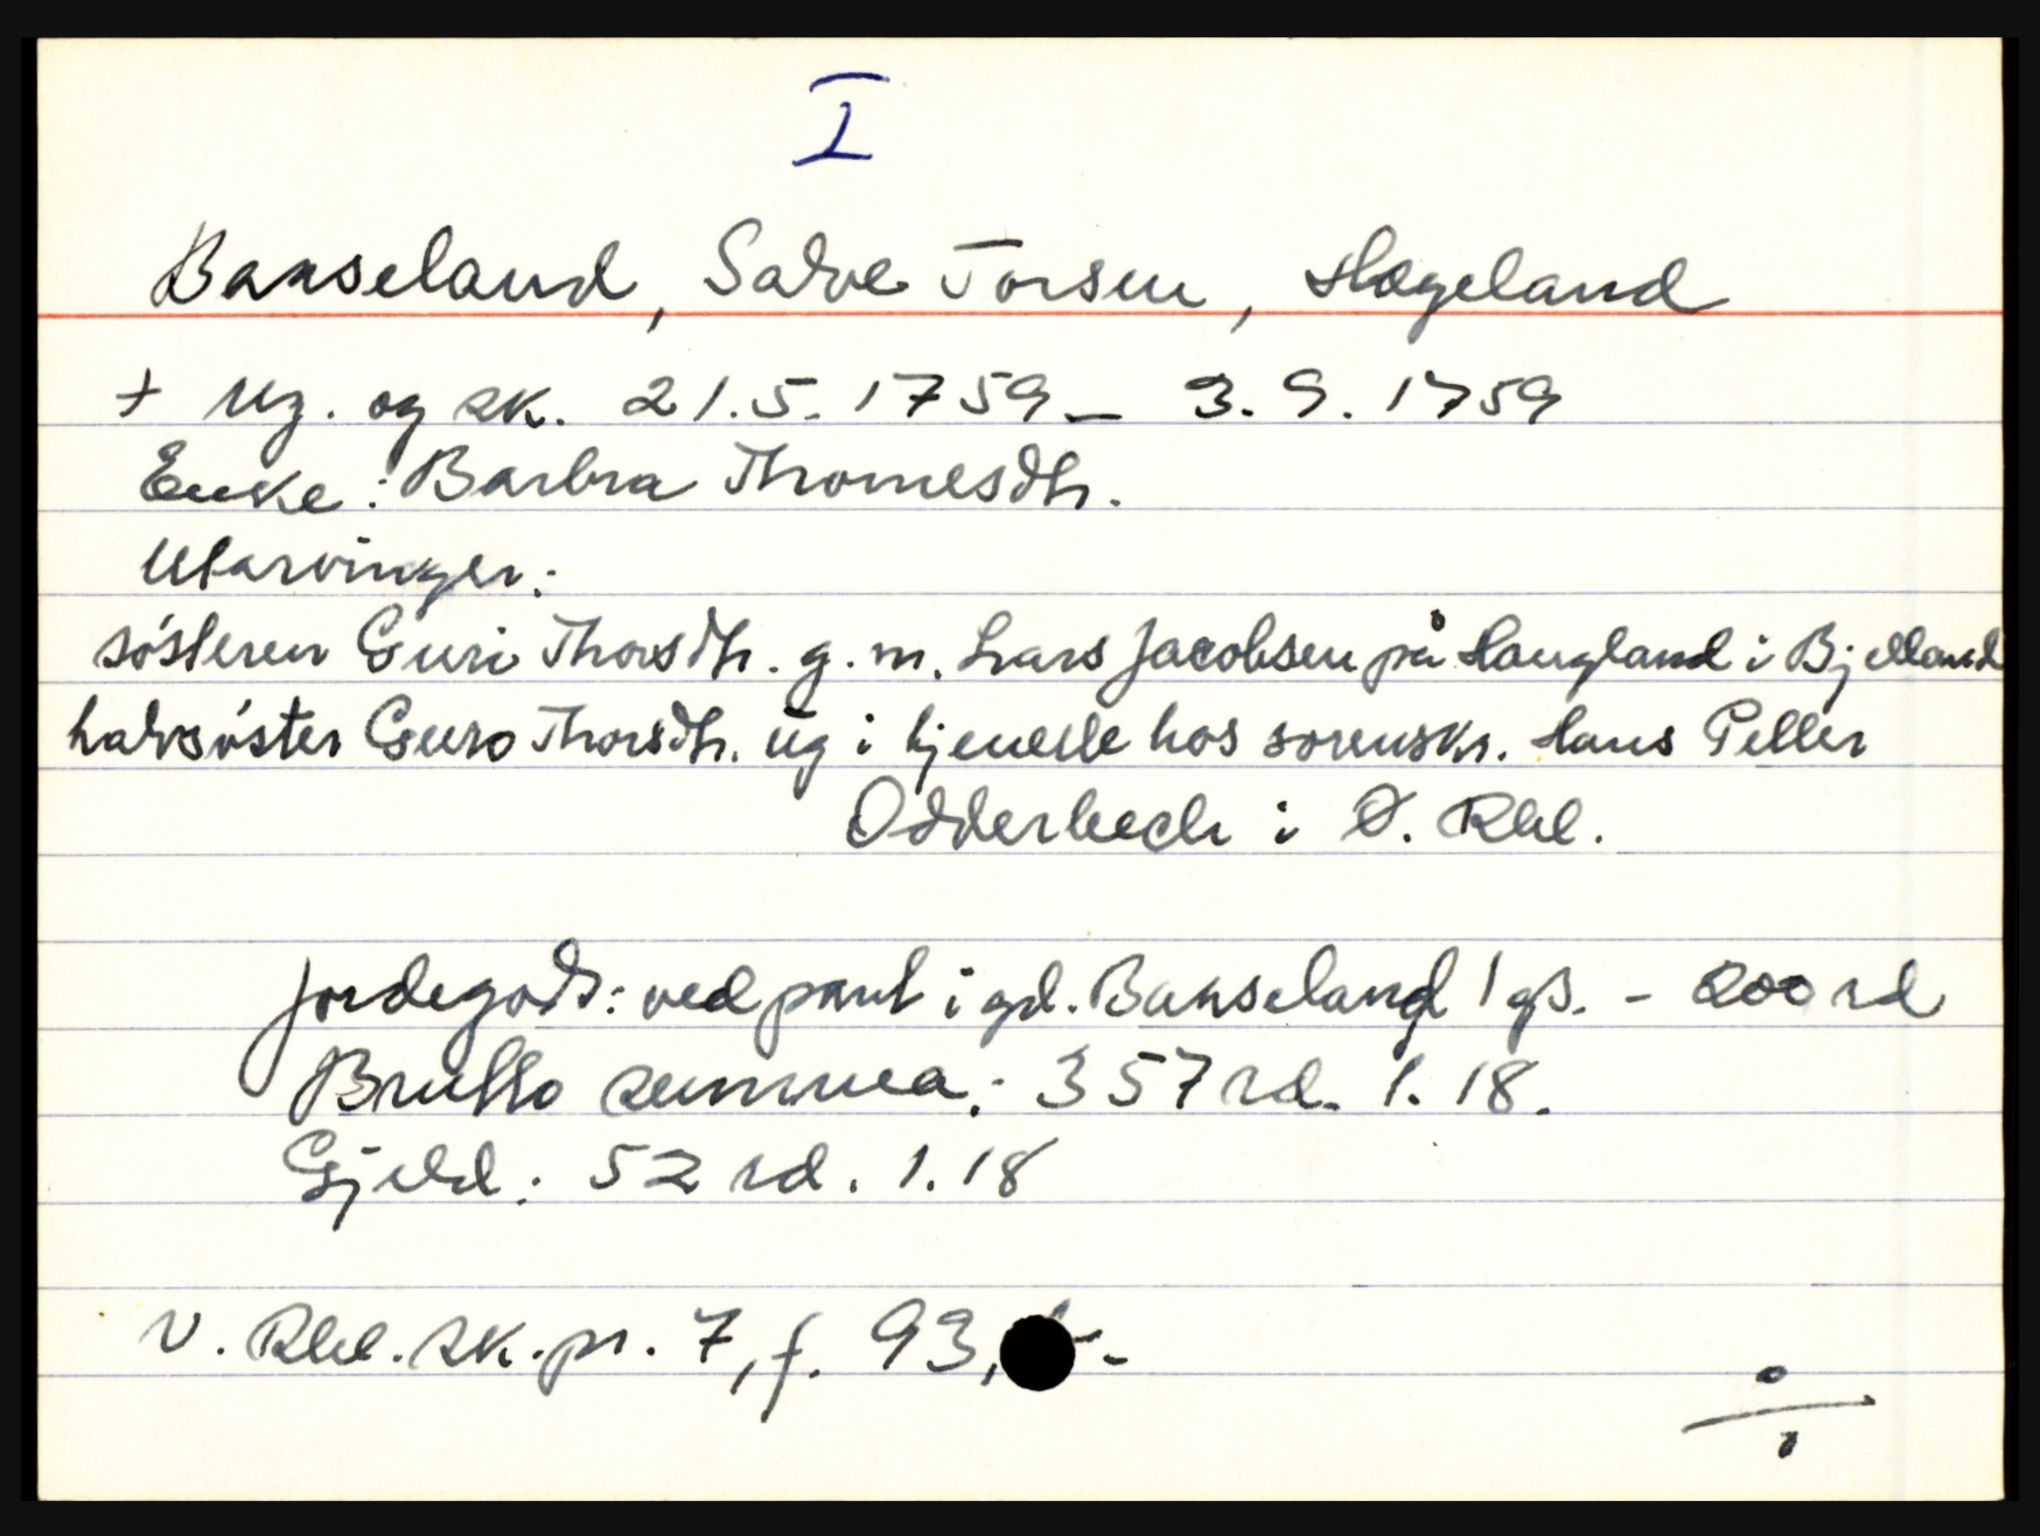 I
Banseland, Salve Torsen, Hægeland
+ Ug. og sk. 21.5.1759 – 3.9.1759
Enke: Barbra Thomesdtr.
Utarvinger:
søsteren Guri Thorsdtr. g.m. Lars Jacobsen på Haugland i Bjelland
halvsøster Guro Thorsdtr. ug i tjeneste hos sorenskr. Hans Peller
Odderbech i Ø. Rbl.
Jordegods: ved pant i gd. Banseland 1 gß. - 200 rd
Brutto summa: 357 rd. 1. 18.
Gjeld: 52 rd. 1. 18
V. Rbl. sk. pr. 7, f. 93,